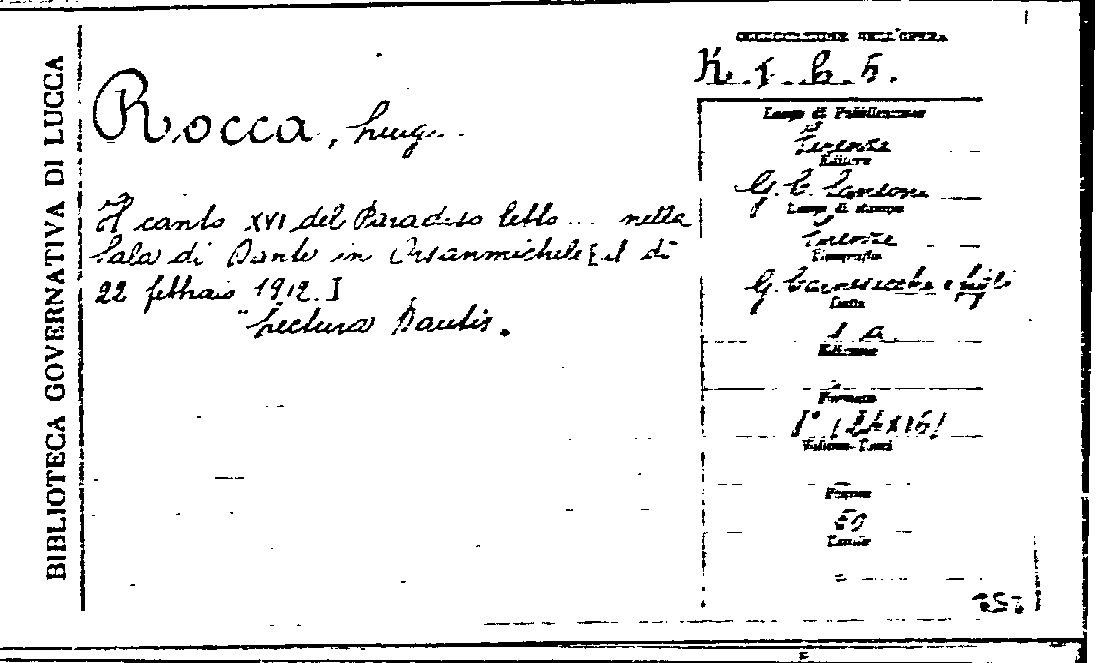 BIBLIOTECA GOVERNATIVA DI LUCCA
Rocca, Luigi
Il canto XVI del Paradiso letto ... nella
Sala di Dante in Orsanmichele [il dì
22 febbraio 1912.]
"Lectura Dantis.
COLLOCAZIONE DELL'OPERA
Luogo di Pubblicazione
Firenze
Editore
G. C. Sansoni
Luogo di stampa
Firenze
Tipografia
G. Carnesecchi e figli
Data
s. a.
Edizione
Formato
8° (24x16)
Volume-Tomi
Pagine
50
Tavole